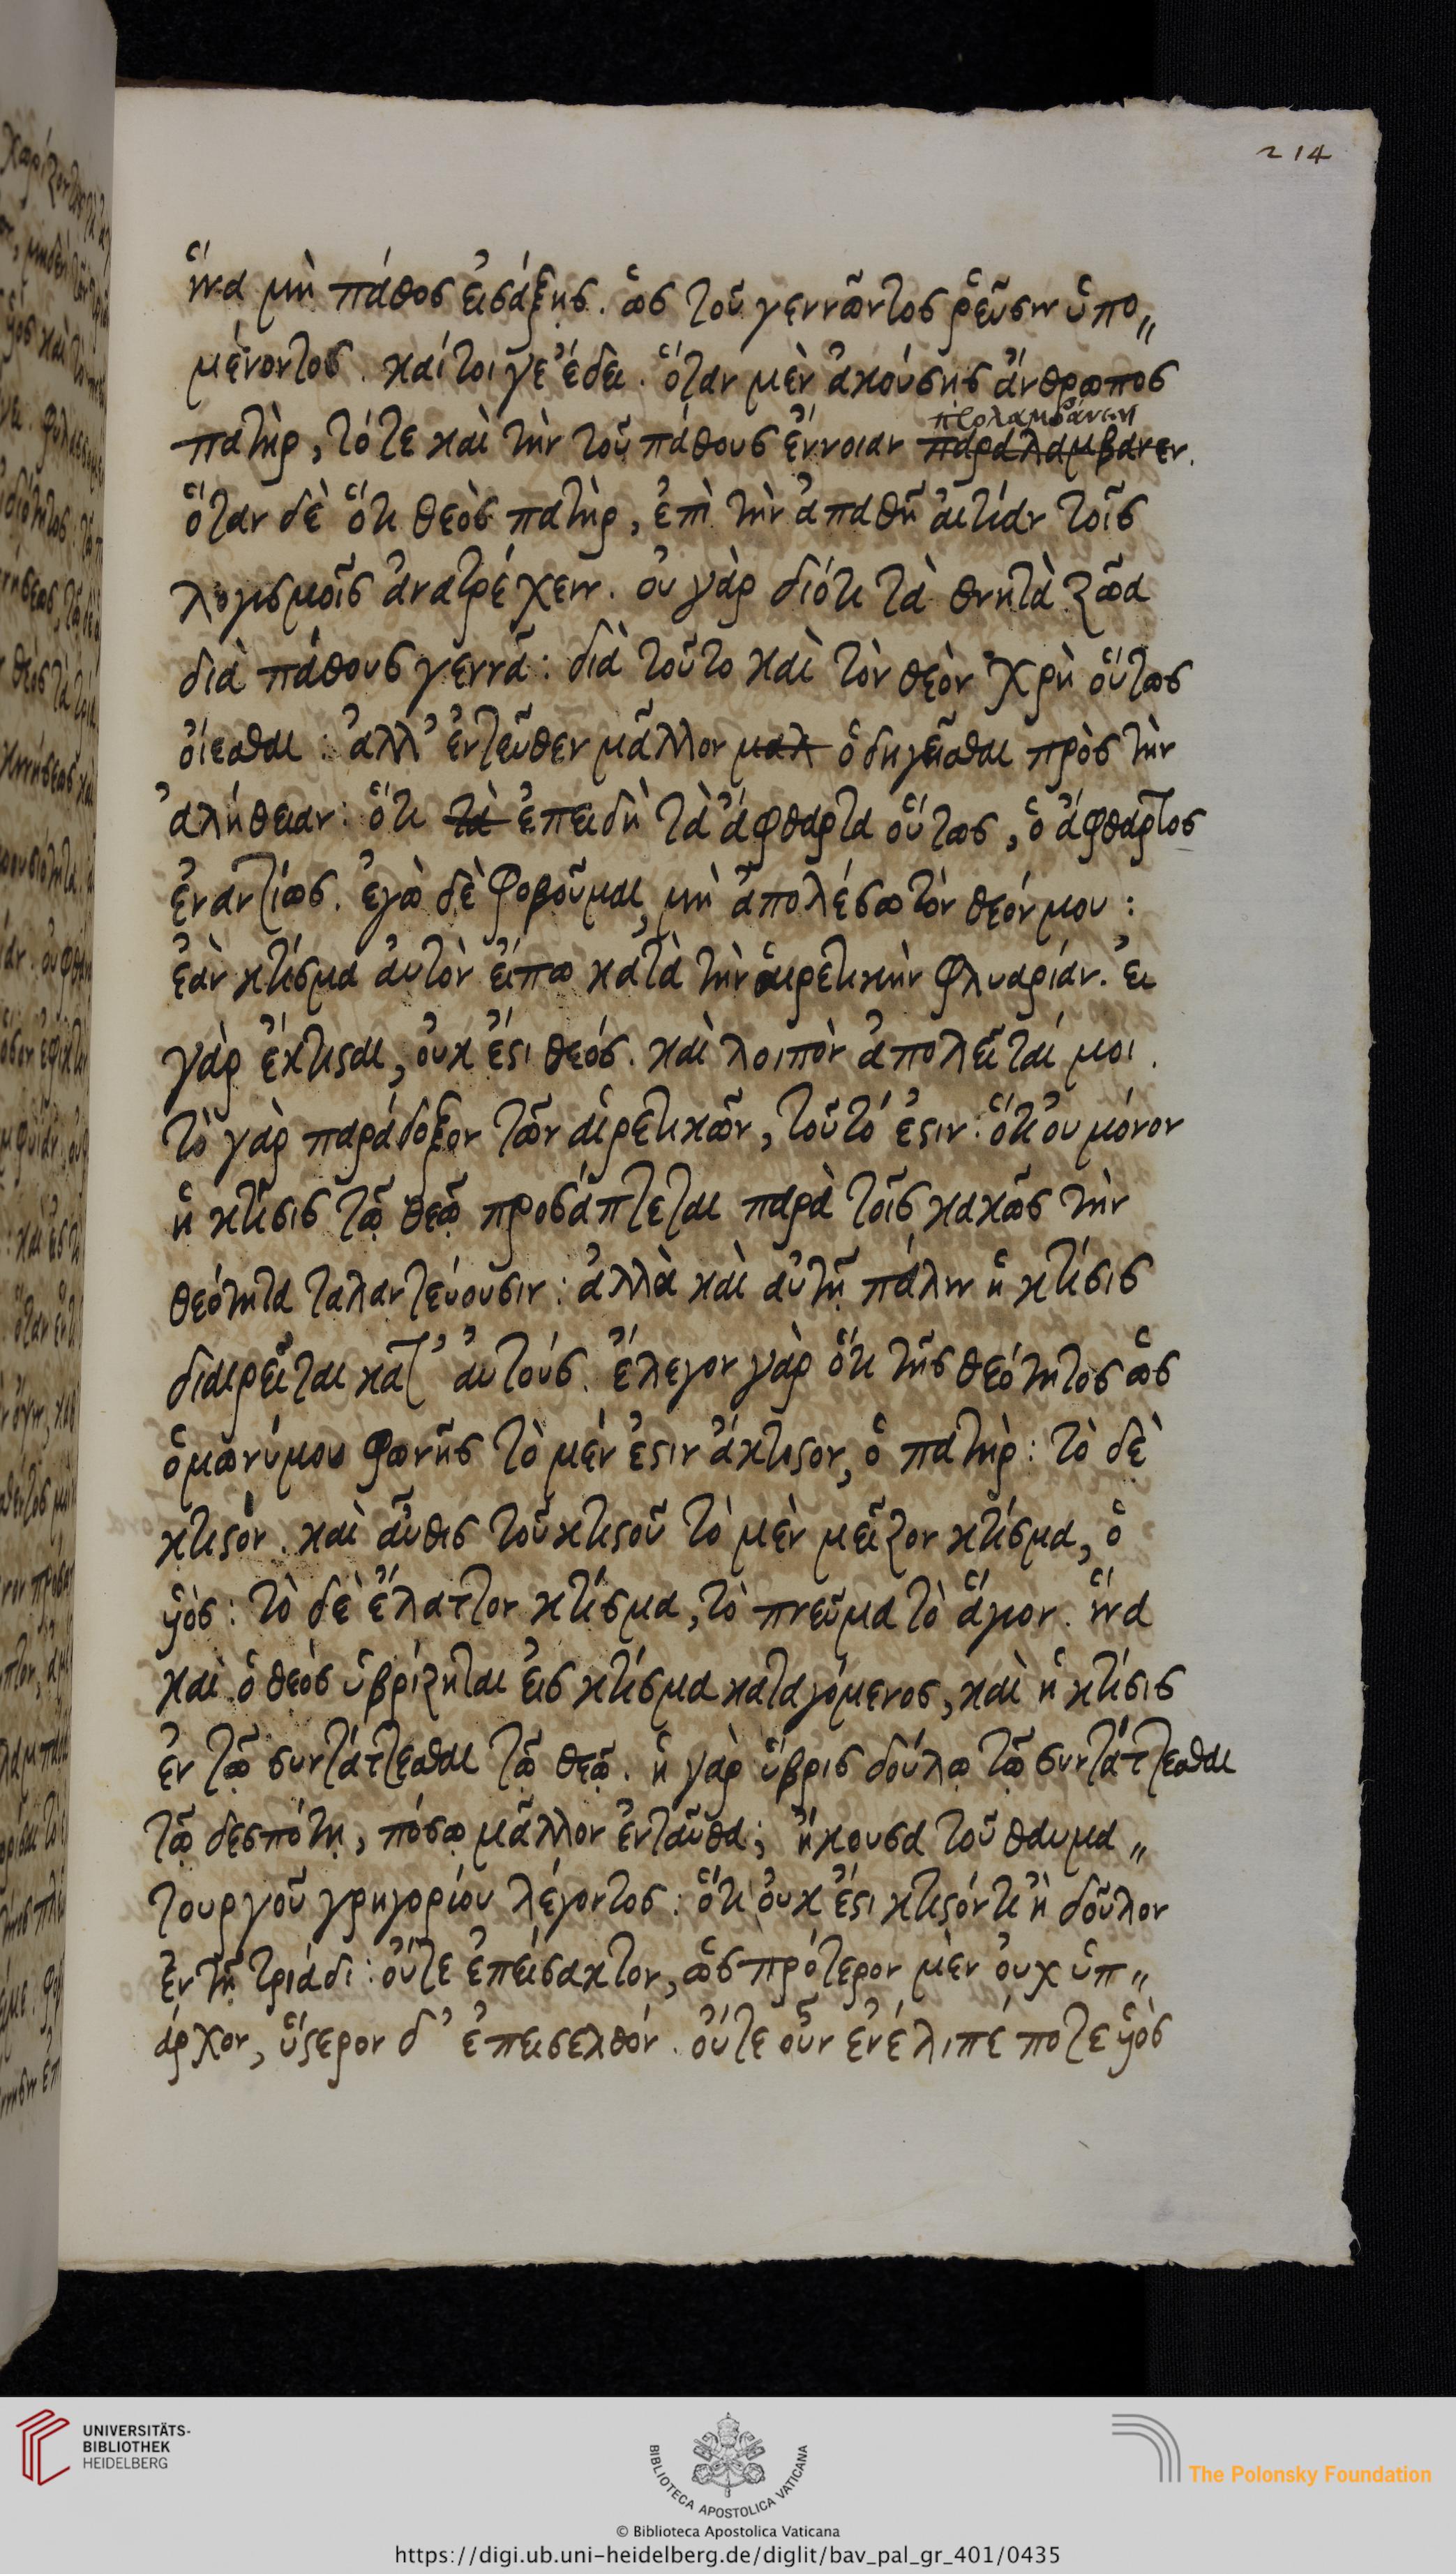 214
ἵνα μὴ πάθος εἰσάξῃς. ὡς τοῦ γεννῶντος ῥεῦσιν ὑπο„
μένοντος. καίτοιγε ἔδει. ὅταν μὲν ἀκούσῃς ἄνθρωπος
προλαμβάνειν
πατὴρ, τότε καὶ τὴν τοῦ πάθους ἔννοιαν παραλαμβανεν.
ὅταν δὲ ὅτι θεὸς πατὴρ, ἐπὶ τὴν ἀπαθῆ αἰτίαν τοῖς
λογισμοῖς ἀνατρέχειν. οὐ γὰρ διότι τὰ θνητὰ ζῶα
διὰ πάθους γεννᾶ: διὰ τοῦτο καὶ τὸν θεὸν χρὴ οὕτως
οἴεσθαι: ἀλλ' ἐντεῦθεν μᾶλλον μαλ ὁδηγεῖσθαι πρὸς τὴν
ἀλήθειαν: ὅτι τὰ ἐπειδὴ τὰ ἄφθαρτα οὕτως, ὁ ἄφθαρτος
ἐναντίως. ἐγὼ δὲ φοβοῦμαι, μὴ ἀπολέσω τὸν θεόν μου:
ἐὰν κτίσμα αὐτὸν εἴπω κατὰ τὴν αἱρετικὴν φλυαρίαν. εἰ
γὰρ ἔκτισται, οὐκ ἔστι θεός. καὶ λοιπὸν ἀπολεῖταί μοι.
τὸ γὰρ παράδοξον τῶν αἱρετικῶν, τοῦτό ἐστιν: ὅτι οὐ μόνον
ἡ κτῆσις τῷ θεῷ προσάπτεται παρὰ τοῖς κακῶς τὴν
θεότητα ταλαντεύουσιν: ἀλλὰ καὶ αὐτῇ πάλιν ἡ κτίσις
διαιρεῖται κατ' αὐτούς. ἔλεγον γὰρ ὅτι τῆς θεότητος ὡς
ὁμωνύμου φωνῆς τὸ μέν ἐστιν ἄκτιστον, ὁ πατὴρ: τὸ δὲ
κτιστόν. καὶ αὖθις τοῦ κτιστοῦ τὸ μὲν μεῖζον κτίσμα, ὁ
υἱὸς: τὸ δὲ ἔλαττον κτίσμα, τὸ πνεῦμα τὸ ἅγιον. ἵνα
καὶ ὁ θεὸς ὑβρίζηται εἰς κτίσμα καταγόμενος, καὶ ἡ κτίσις
ἐν τῷ συντάττεσθαι τῷ θεῷ. ἡ γὰρ ὕβρις δούλῳ τῷ συντάττεσθαι
τῷ δεσπότῃ, πόσῳ μᾶλλον ἐνταῦθα; ἤκουσα τοῦ θαυμα„
τουργοῦ γρηγορίου λέγοντος: ὅτι οὐκ ἔστι κτιστόν τι ἢ δοῦλον
ἐν τῇ τριάδι: οὔτε ἐπείσακτον, ὡς πρότερον μὲν οὐχ ὑπ„
άρχον, ὕστερον δ' ἐπεισελθόν. οὔτε οὖν ἐνέλιπέ ποτε υἱὸς
UNIVERSITÄTS-
BIBLIOTHEK
HEIDELBERG
BIBLIOTECA APOSTOLICA VATICANA
The Polonsky Foundation
© Biblioteca Apostolica Vaticana
https://digi.ub.uni-heidelberg.de/diglit/bav_pal_gr_401/0435